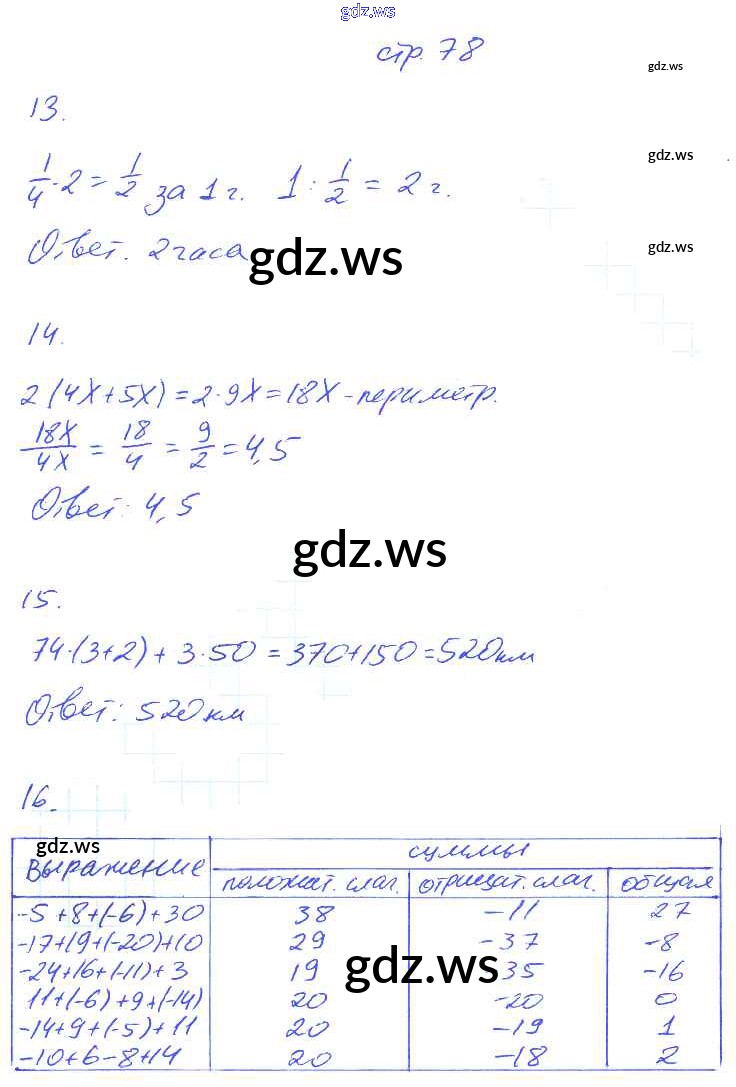 gdz.ws
стр. 78
gdz.ws
13.
1/4 · 2 = 1/2 за 1 ч. 1 : 1/2 = 2 ч.
gdz.ws
Ответ. 2 часа
gdz.ws
gdz.ws
14.
2 (4x + 5x) = 2 · 9x = 18x - периметр.
18x/4x = 18/4 = 9/2 = 4,5
Ответ: 4,5
gdz.ws
15.
74·(3+2) + 3·50 = 370+150 = 520 км
Ответ: 520 км
16.
gdz.ws
Выражение суммы
положит. слаг. отрицат. слаг. общая
-5+8+(-6)+30 38 -11 27
-17+19+(-20)+10 29 -37 -8
-24+16+(-11)+3 19 -35 -16
gdz.ws
11+(-6)+9+(-14) 20 -20 0
-14+9+(-5)+11 20 -19 1
-10+6-8+14 20 -18 2